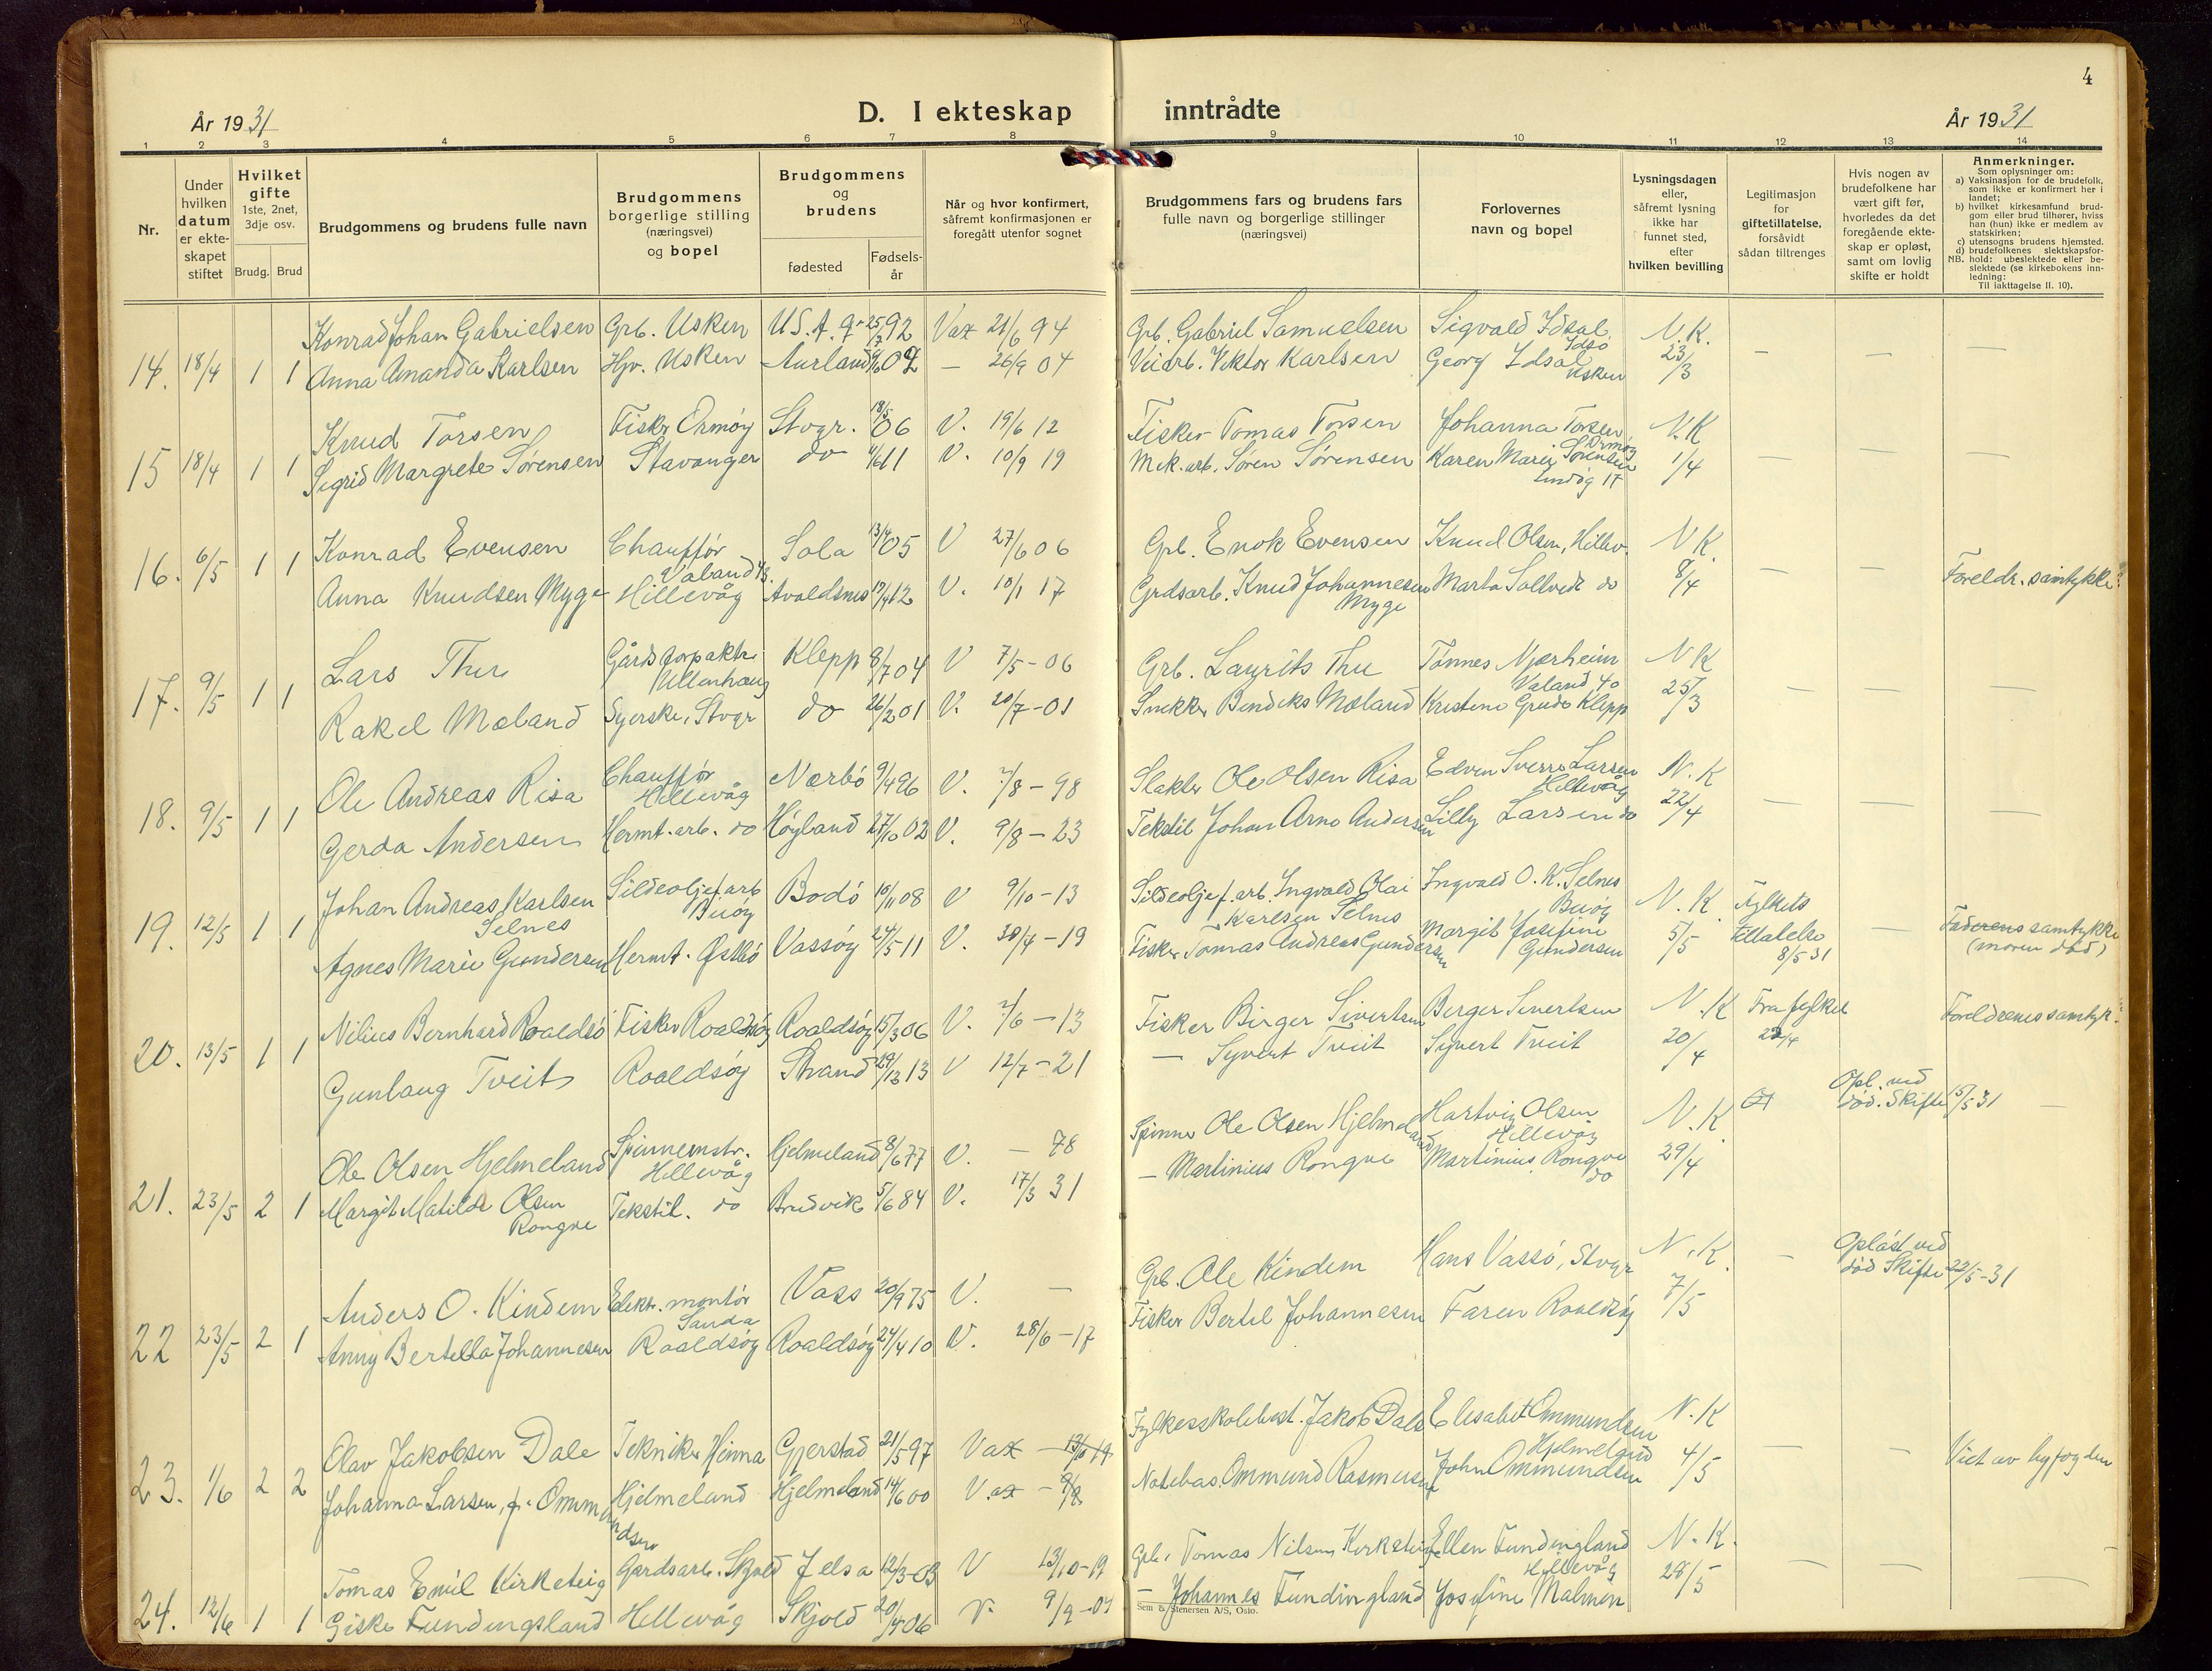 4
År 1931
D. I ekteskap inntrådte
År 1931
1 2 3 4 5 6 7 8 9 10 11 12 13 14
Nr.
Under hvilken datum er ekteskapet stiftet
Hvilket gifte 1ste, 2net, 3dje osv.
Brudg. Brud
Brudgommens og brudens fulle navn
Brudgommens borgerlige stilling (næringsvei) og bopel
Brudgommens og brudens
fødested
Fødselsår
Når og hvor konfirmert, såfremt konfirmasjonen er foregått utenfor sognet
Brudgommens fars og brudens fars fulle navn og borgerlige stillinger (næringsvei)
Forlovernes navn og bopel
Lysningsdagen eller, såfremt lysning ikke har funnet sted, efter hvilken bevilling
Legitimasjon for giftetillatelse, forsåvidt sådan tiltrenges
Hvis nogen av brudefolkene har vært gift før, hvorledes da det foregående ekteskap er opløst, samt om lovlig skifte er holdt
Anmerkninger.
Som oplysninger om:
a) Vaksinasjon for de brudefolk, som ikke er konfirmert her i landet;
b) hvilket kirkesamfund brudgom eller brud tilhører, hviss han (hun) ikke er medlem av statskirken;
c) utensogns brudens hjemsted.
d) brudefolkenes slektskapsforhold: ubeslektede eller beslektede (se kirkebokens innledning:
NB. Til iakttagelse II. 10).
14. 18/4 1 1 Konrad Johan Gabrielsen Grb. Usken U.S.A. 25/7 92 Vax 21/6 94 Grb. Gabriel Samuelsen Sigvald Idsal Idsø N.K. 23/3 — — —
Anna Amanda Karlsen Hjv. Usken Aurland 02 — 26/9 04 Veiarb. Viktor Karlsen Georg Idsal Usken
15 18/4 1 1 Knud Torsen Fisker Ormøy Stvgr. 18/5 06 V. 19/6 12 Fisker Tomas Torsen Johanna Torsen Ormøy N.K 1/4 — — —
Sigrid Margrete Sørensen Stavanger do 4/6 11 V. 10/9 19 Mek. arb. Søren Sørensen Karen Marie Sørensen Lindøg 17
16. 6/5 1 1 Konrad Evensen Chauffør Våland Sola 13/4 05 V 27/6 06 Grb. Enok Evensen Knud Olsen, Hillev. N K. 8/4 — — Foreldr. samtykke
Anna Knudsen Myge Hillevåg Avaldsnes 19/4 12 V. 10/1 17 Grdsarb. Knud Johannesen Myge Marta Sollvedt do
17. 9/5 1 1 Lars Thu Gårdsforpakter Ullenhaug Klepp 8/7 04 V 7/5-06 Grb. Laurits Thu Tønnes Nærheim Valand 40 N K 25/3 — — —
Rakel Mæland Syerske, Stvgr do 26/2 01 V. 20/7-01 Snekker Bendiks Mæland Kristine Grude Klepp
18. 9/5 1 1 Ole Andreas Risa Chauffør Hillevåg Nærbø 9/4 96 V. 7/8-98 Slakter Ole Olsen Risa Edvin Sverre Larsen Hillevåg N.K 22/4 — — —
Gerda Andersen Hermt. arb. do Høyland 27/10 02 V. 9/8-23 Tekstil Johan Arne Andersen Lilly Larsen do
19. 12/5 1 1 Johan Andreas Karlsen Selnes Sildeoljef. arb Buøy Bodø 10/11 08 V 9/10-13 Sildeoljef. arb. Ingvald Olai Karlsen Selnes Ingvald O. K. Selnes Buøy N.K. 5/5 Fylkets tillatelse 8/5 31 — Faderens samtykke (moren død)
Agnes Marie Gundersen Hermt. Østbø Vassøy 24/5 11 V. 30/7-19 Fisker Tomas Andreas Gundersen Margit Josefine Gundersen
20. 13/5 1 1 Nilius Bernhard Roaldsø Fisker Roaldsøy Roaldsøy 15/3 06 V. 2/6-13 Fisker Birger Sivertsen Berger Sivertsen N.K 20/4 Fra fylket 22/4 Foreldrenes samtyk.
Gunlaug Tveit Roaldsøy Strand 29/12 13 V 12/7-21 — Syvert Tveit Syvert Tveit
21. 23/5 2 1 Ole Olsen Hjelmeland Spinnemstr. Hillevåg Hjelmeland 8/6 77 V. — 78 Spinner Ole Olsen Hjelmeland Hartvig Olsen Hillevåg N.K. 29/4 Opl. ved død. Skifte 15/5 31 —
Margit Matilde Olsen Rongve Tekstil. do Bruvik 5/6 84 V. 17/3 31 — Martinius Rongve Martinius Rongve do
22 23/5 2 1 Anders O. Kindem Elektr. montør Sanda Voss 20/9 75 V. — Grb. Ole Kindem Hans Vassø, Stvgr N.K. 7/5 — Opløst ved død Skifte 22/5-31
Anny Bertella Johannesen Roaldsøy Roaldsøy 24/4 10 V. 28/6-17 Fisker Bertel Johannesen Faren Roaldsøy
23. 1/6 2 2 Olav Jakobsen Dale Tekniker Hinna Gjerstad 21/5 97 Vax — Fylkesskolebest. Jakob Dale Elisabet Ommundsen Hjelmeland N.K 4/5 — — Viet av byfogden
Johanna Larsen, f. Ommundsen Hjelmeland Hjelmeland 14/6 00 Vax — Notebas. Ommund Rasmussen John Ommundsen
24. 12/6 1 1 Tomas Emil Kirketeig Gardsarb. Skjold Jelsa 12/3-03 V 13/10-19 Grb. Tomas Nilsen Kirketeig Ellen Fundingland Hillevåg N.K. 28/5 — — —
Giske Fundingsland Hillevåg Skjold 20/4 06 V. 9/9-07 — Johannes Fundingland Josefine Malmen
Sem & Stenersen A/S, Oslo.